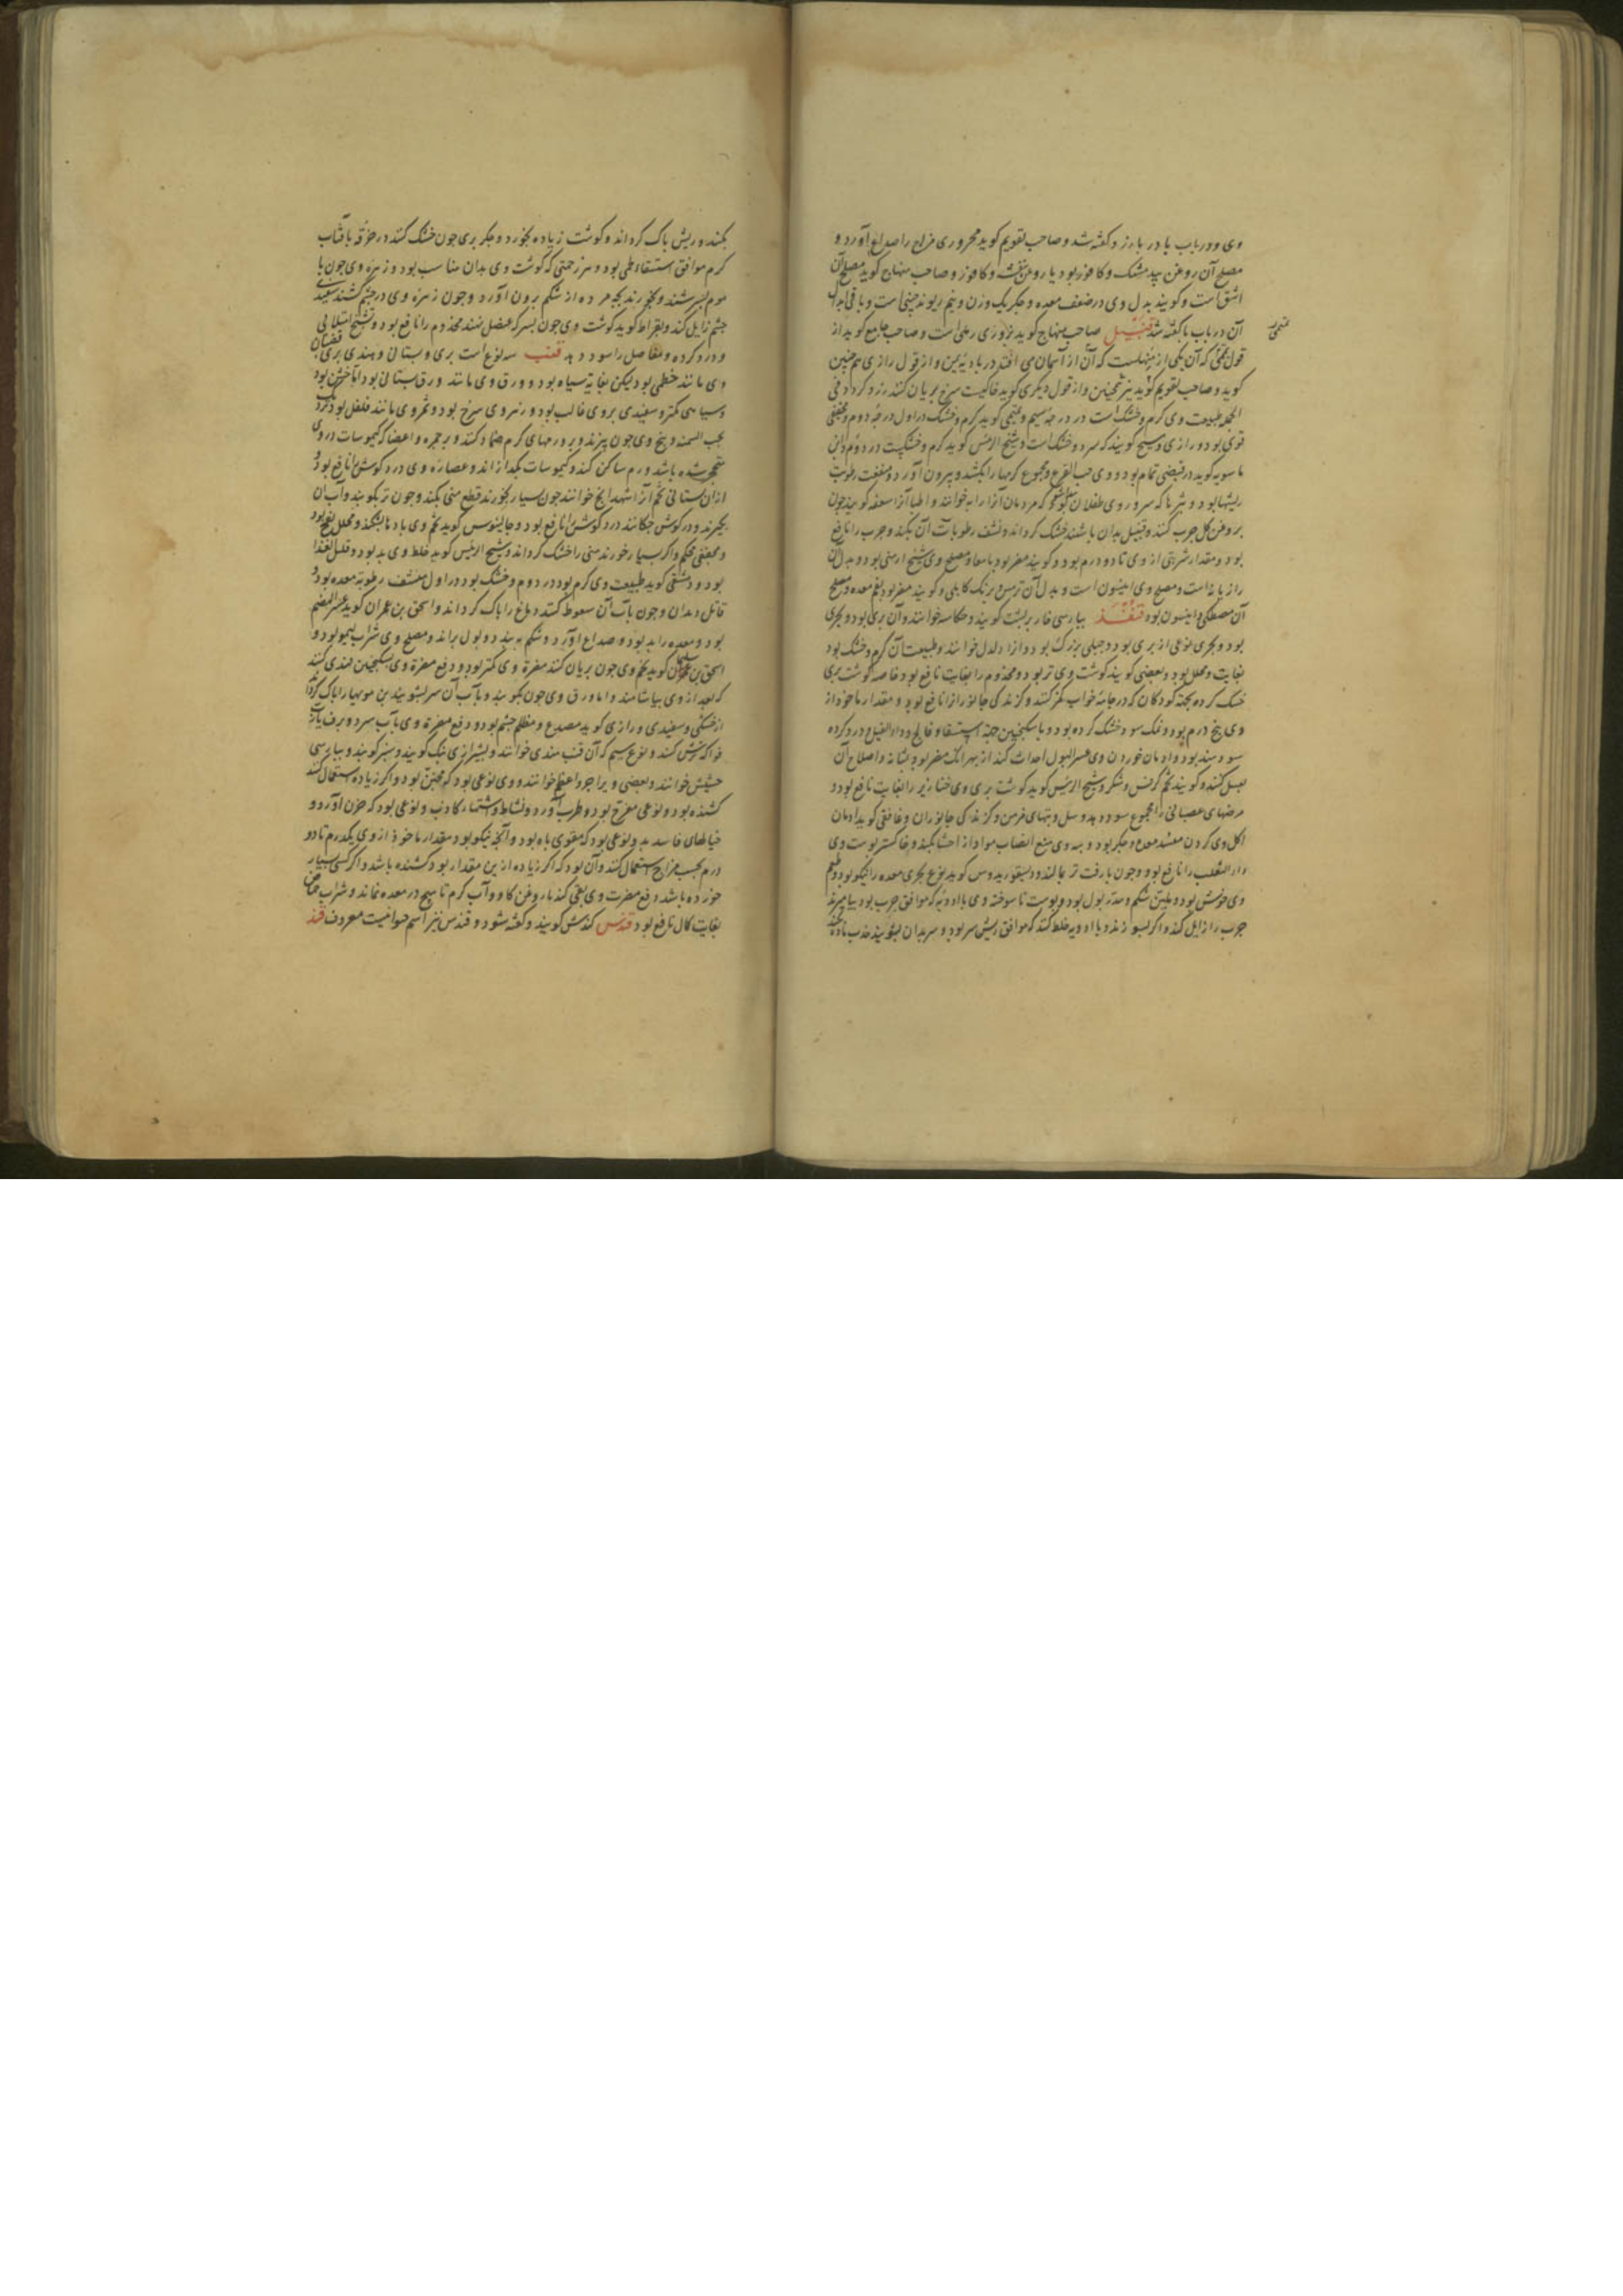 وی ودر باب با در بارزد گفته شد و صاحب تقویم گوید محروری مزاج را صداع آورد و
مصلح آن روغن بید مشک و کافور بود یا روغن بنفشه و کافور و صاحب منهاج گوید مصلح آن
اشق است و گویند بدل وی در ضعف معده و جگر یک وزن و نیم ریوند چینی است و باقی ابدال
آن در باب با گفته شد قنبیل صاحب منهاج گوید بزوری رملی است و صاحب جامع گوید از
قول تمیمی که آن یکی از منهاست که آن از آسمان می افتد در بادیه یمن و از قول رازی هم چنین
گوید و صاحب تقویم گوید نیز همچنین و از قول دیگری گوید خاکیست سرخ بریان کنند زرد گردد فی
الجمله طبیعت وی گرم و خشک است در درجه سیم و تمیمی گوید گرم و خشک در اول درجه دوم و مجفف
قوی بود و رازی و مسیح گویند که سرد و خشک است و شیخ الرئیس گوید گرم و خشکیست در دوم و ابن
ماسویه گوید در قبضی تمام بود و وی حب القرع و مجموع کرمها را بکشد و بیرون آورد و منفعت رطوبت
ریشها بود و بثرها که سر و روی طفلان که مردمان آنرا خوانند و اطبا آنرا سعفه گویند چون
بروغن گل چرب کنند و قنبیل بدان پاشند خشک گرداند و نشف رطوبات آن بکند و جرب را نافع
بود و مقدار شربتی از وی تا دو درم بود و گویند مضر بود بامعا و مصلح وی شیح ارمنی بود و بدل آن
رازیانه است و مصلح وی انیسون است و بدل آن ترمس و برنگ کابلی و گویند مضر بود بفم معده و مصلح
آن مصطکی و انیسون بود قنفذ بپارسی خارپشت گویند و حکاسه خوانند و آن بری بود و بحری
بود و بحری نوعی از بری بود و جبلی بزرگ بود و او را دلدل خوانند و طبیعت آن گرم و خشک بود
بغایت و محلل بود و بعضی گویند گوشت وی تر بود و مجذوم را بغایت نافع بود خاصه گوشت بری
خشک کرده بجهة کودکان که در جامه خواب کمیز کنند و گزندگی جانوران را نافع بود و مقدار ماخوذ از
وی پنج درم بود و نمک سود خشک کرده بود و با سکنجبین جهة استسقا و فالج و داء الفیل و درد گرده
سودمند بود و ادمان خوردن وی عسر البول احداث کند از بهر آنک مضر بود بمثانه و اصلاح آن
بعسل کنند و گویند تخم کرفس و شکر و شیخ الرئیس گوید گوشت بری وی خنازیر را بغایت نافع بود و
مرضهای عصبانی را مجموع سود دهد و سل و تبهای مزمن و گزندگی جانوران و غافقی گوید ادمان
اکل وی کردن مفسد معده و جگر بود و وی منع انصباب مواد از احشا بکند و خاکستر پوست وی
داء الثعلب را نافع بود و چون با زفت تر بمالند و دیسقوریدوس گوید نوع بحری معده را نیکو بود و طعم
وی خوش بود و ملین شکم و مدر بول بود و پوست تا سوخته وی با ادویه که موافق جرب بود بیامیزند
جرب را زایل کند و اگر بسوزند و با ادویه خلط کنند که موافق ریش سر بود و سر بدان بشویند جذب ماده
قنبیل
بکند و ریش پاک گرداند و گوشت زیاده بخورد و جگر بری چون خشک کنند در خرقه بآفتاب
گرم موافق استسقاء لحمی بود و هر زحمتی که گوشت وی بدان مناسب بود و زهره وی چون با
موم بسرشند و بخورند بچه مرده از شکم برون آورد و چون زهره وی در چشم کشند سفیدی
چشم زایل کند و بقراط گوید گوشت وی چون بسرکه عنصل نهند مجذوم را نافع بود و تشنج امتلائی
و درد گرده و مفاصل را سود دهد قنب سه نوع است بری و بستانی و هندی بری قضبان
وی مانند خطمی بود لیکن بغایة سیاه بود و ورق وی مانند ورق بستانی بود اما خشن بود
و سیاهی کمتر و سفیدی بر وی غالب بود و زهر وی سرخ بود و ثمر وی مانند فلفل بود گرد
بحب السمنه و بیخ وی چون بپزند و بر ورمهای گرم ضماد کنند و بر حمره و اعضا که کیموسات در وی
متحجر شده باشد ورم ساکن کند و کیموسات بگدازاند و عصاره وی درد گوش را نافع بود و
از آن بستانی تخم آنرا شهدانج خوانند چون بسیار بخورند قطع منی بکند و چون تر بکوبند و آب آن
بگیرند و در گوش چکانند درد گوش را نافع بود و جالینوس گوید تخم وی بادها بشکند و محلل نفخ بود
و مجفف محکم و اگر بسیار خورند منی را خشک گرداند و شیخ الرئیس گوید خلط وی بد بود و قلیل الغذا
بود و دمشقی گوید طبیعت وی گرم بود در دوم و خشک بود در اول منشف رطوبة معده بود و
قاتل دیدان و چون بآب آن سعوط کنند دماغ را پاک گرداند و اسحق بن عمران گوید عسر الهضم
بود و معده را بد بود و صداع آورد و شکم ببندد و بول براند و مصلح وی شراب لیمو بود و
اسحق بن سلیمان گوید تخم وی چون بریان کنند مضرة وی کمتر بود و دفع مضرة وی بسکنجبین قندی کنند
که بعد از وی بیاشامند و اما ورق وی چون بکوبند و بآب آن سر بشویند بن مویها را پاک گرداند
از خشکی و سفیدی و رازی گوید مصدع و مظلم چشم بود و دفع مضرة وی بآب سرد و برف یا آب
فواکه ترش کنند و نوع سیم که آن قنب هندی خوانند و بشیرازی بنگ گویند و سبز گویند و بپارسی
حشیش خوانند و بعضی ویرا جزو اعظم خوانند و وی نوعی بود که مجنن بود و اگر زیاده استعمال کنند
کشنده بود و نوعی مفرح بود و طرب آورد و نشاط و اشتهاء کاذب و نوعی بود که حزن آورد و
خیالهای فاسد بد و نوعی بود که مقوی باه بود و آنچه نیکو بود مقدار ماخوذ از وی یکدرم تا دو
درم بحسب مزاج استعمال کنند و آن بود که اگر زیاده از این مقدار بود کشنده باشد و اگر کسی بسیار
خورده باشد دفع مضرت وی بقی کنند با روغن گاو و آب گرم تا هیچ در معده نماند و شراب حماض
بغایت کمال نافع بود قندس کندش گویند و گفته شود و قندس نیز اسم حیوانیست معروف قند